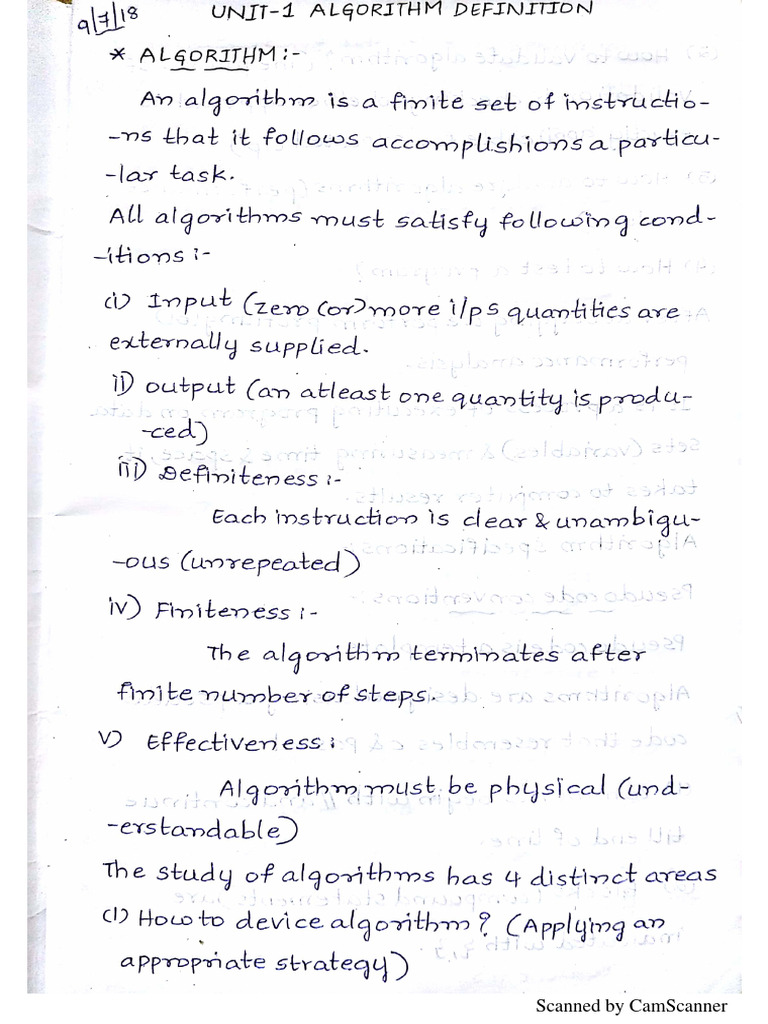 9/7/18
UNIT-1 ALGORITHM DEFINITION
* ALGORITHM:-
An algorithm is a finite set of instructio-
-ns that it follows accomplishions a particu-
-lar task.
All algorithms must satisfy following cond-
-itions:-
(i) Input (zero (or) more i/ps quantities are
externally supplied.
ii) output (an atleast one quantity is produ-
-ced)
iii) Definiteness:-
Each instruction is clear & unambigu-
-ous (unrepeated)
iv) Finiteness:-
The algorithm terminates after
finite number of steps.
v) Effectiveness:
Algorithm must be physical (und-
-erstandable)
The study of algorithms has 4 distinct areas
(1) How to device algorithm? (Applying an
appropriate strategy)
Scanned by CamScanner